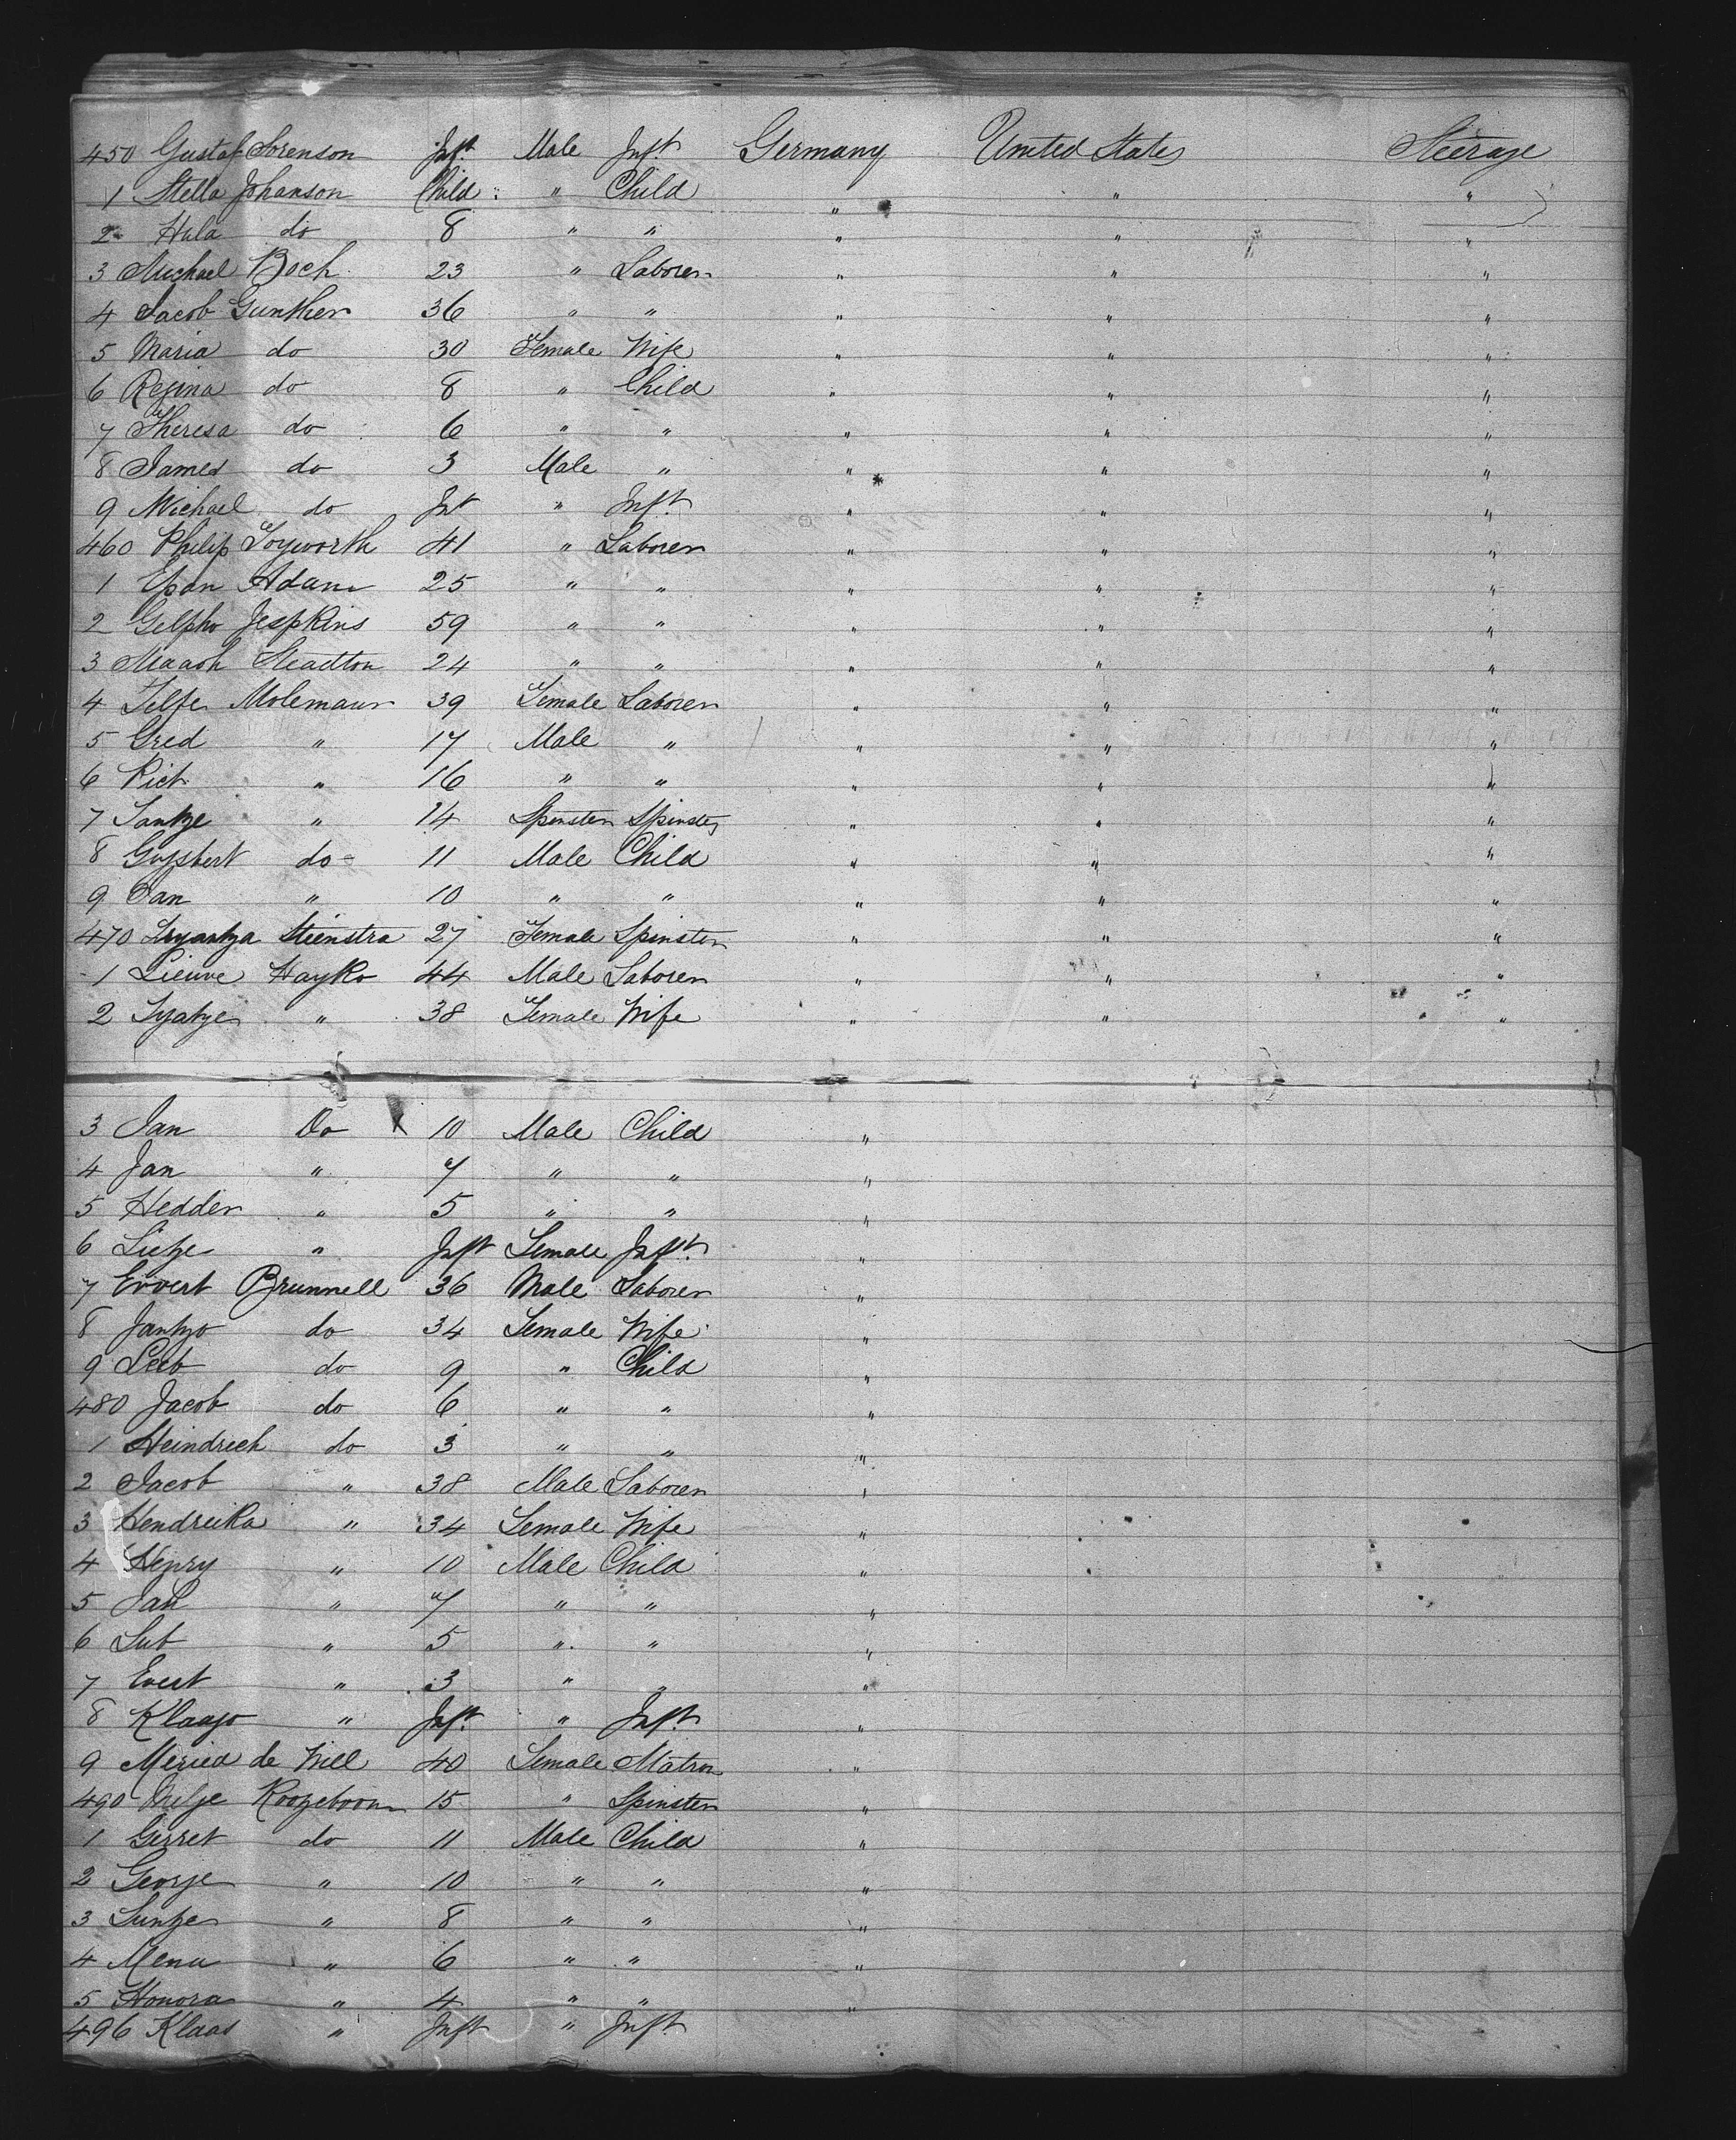 450 Gustaf Sorenson Inft. Male Inft. Germany United States Steerage
1 Stella Johanson Child " Child " " "
2 Hula do 8 " " " " "
3 Michael Boch 23 " Laborer " " "
4 Jacob Gunther 36 " " " " "
5 Maria do 30 Female Wife " " "
6 Regina do 8 " Child " " "
7 Theresa do 6 " " " " "
8 James do 3 Male " " " "
9 Michael do Inft " Inft. " " "
460 Philip 41 " Laborer " " "
1 Adam 25 " " " " "
2 Jespkins 59 " " " " "
3 24 " " " " "
4 Molemaur 39 Female Laborer " " "
5 Gred " 17 Male " " " "
6 Piet " 16 " " " " "
7 Jantze " 14 Spinster Spinster " " "
8 Guysbert do 11 Male Child " " "
9 Jan " 10 " " " " "
470 Stienstra 27 Female Spinster " " "
1 Lieuve Hayko 44 Male Laborer " " "
2 Tyatye " 38 Female Wife " " "
3 Jan Do 10 Male Child "
4 Jan " 7 " " "
5 Hedder " 5 " " "
6 Lietze " Inft Female Inft. "
7 Evvert Brunnell 36 Male Laborer "
8 Jantzo do 34 Female Wife "
9 Leeb do 9 " Child "
480 Jacob do 6 " " "
1 Heindrich do 3 " " "
2 Jacob " 38 Male Laborer "
3 Hendreika " 34 Female Wife "
4 Henry " 10 Male Child "
5 Jan " 7 " " "
6 Lub " 5 " " "
7 Evert " 3 " " "
8 Klaazo " Inft. " Inft. "
9 de Will 40 Female Matron "
490 Roozeboom 15 " Spinster "
1 Gerret do 11 Male Child "
2 George " 10 " " "
3 Luntze " 8 " " "
4 Mena " 6 " " "
5 Honora " 4 " " "
496 Klaas " Inft " Inft.